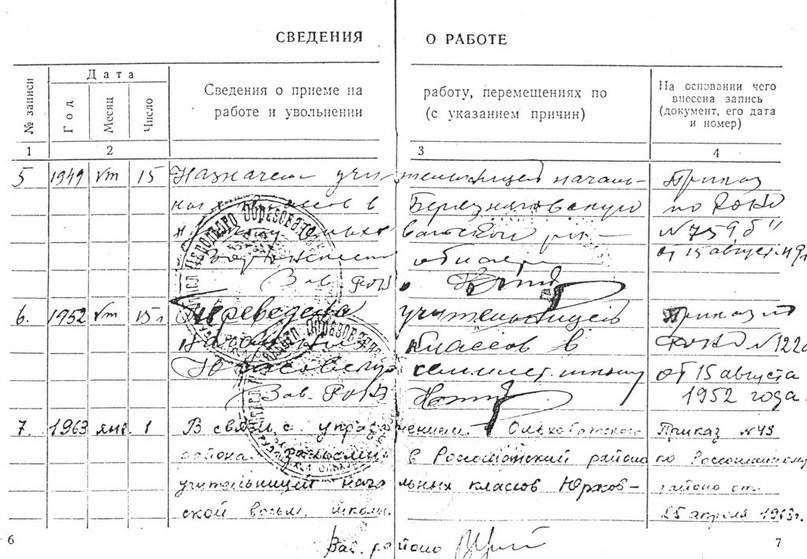 СВЕДЕНИЯ О РАБОТЕ
№ записи
Дата
Год
Месяц
Число
Сведения о приеме на работу, перемещениях по
работе и увольнении (с указанием причин)
На основании чего
внесена запись
(документ, его дата
и номер)
1 2 3 4
5 1949 VIII 15 Назначена учительницей началь-
ных классов в Березняговскую
Приказ
по РОНО
№ 759 б"
от 15 август. 49 г.
области
Зав. РОНО
6. 1952 VIII 15 Переведена учительницей
начальных классов в
семилет. школу
Зав. РОНО
Приказ по
РОНО № 122а
от 15 августа
1952 года.
7. 1963 янв. 1 В связи с упразднением Ольховатского
района в Россошанский район
учительницей начальных классов Юрасов-
ской восьм. школы.
Зав. районо
Приказ № 43
по Россошанскому
районо от
25 апреля 1963 г.
6
7